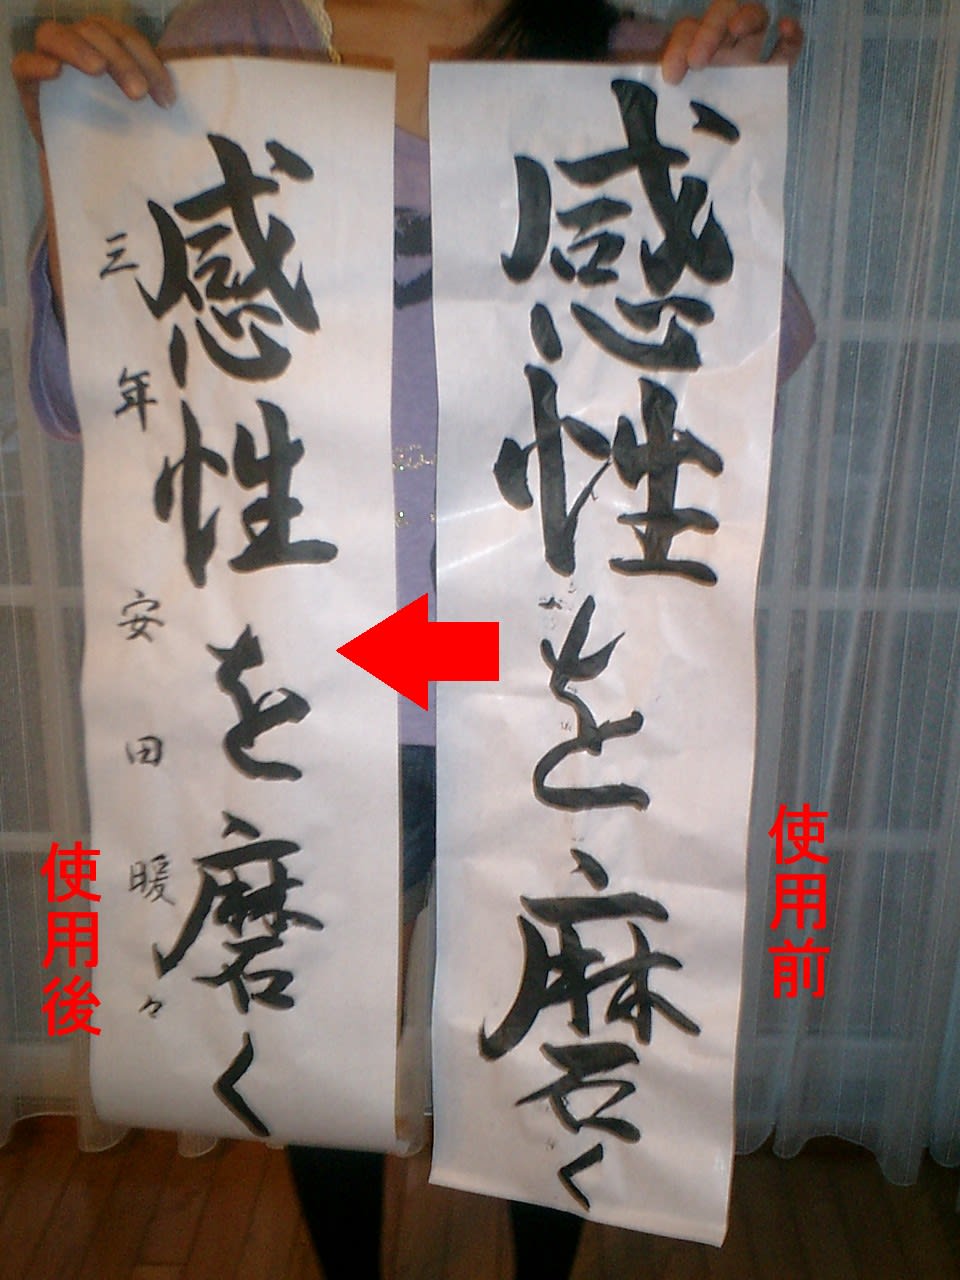 使用前
感性を磨く
感性を磨く
三年安田暖々
使用後